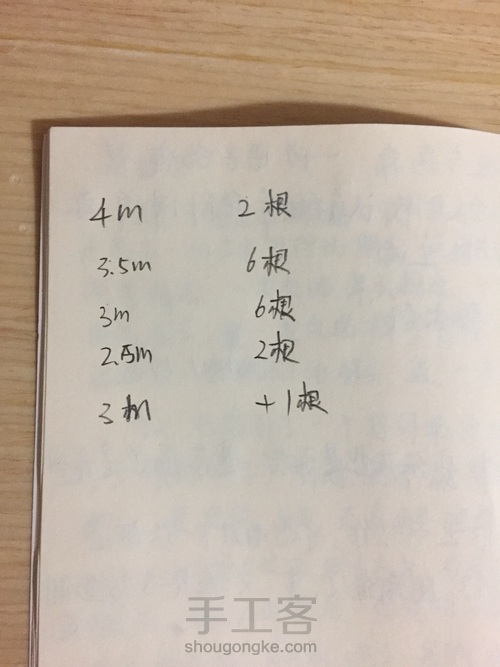 4m 2根
3.5m 6根
3m 6根
2.5m 2根
3m +1根
手工客
shougongke.com